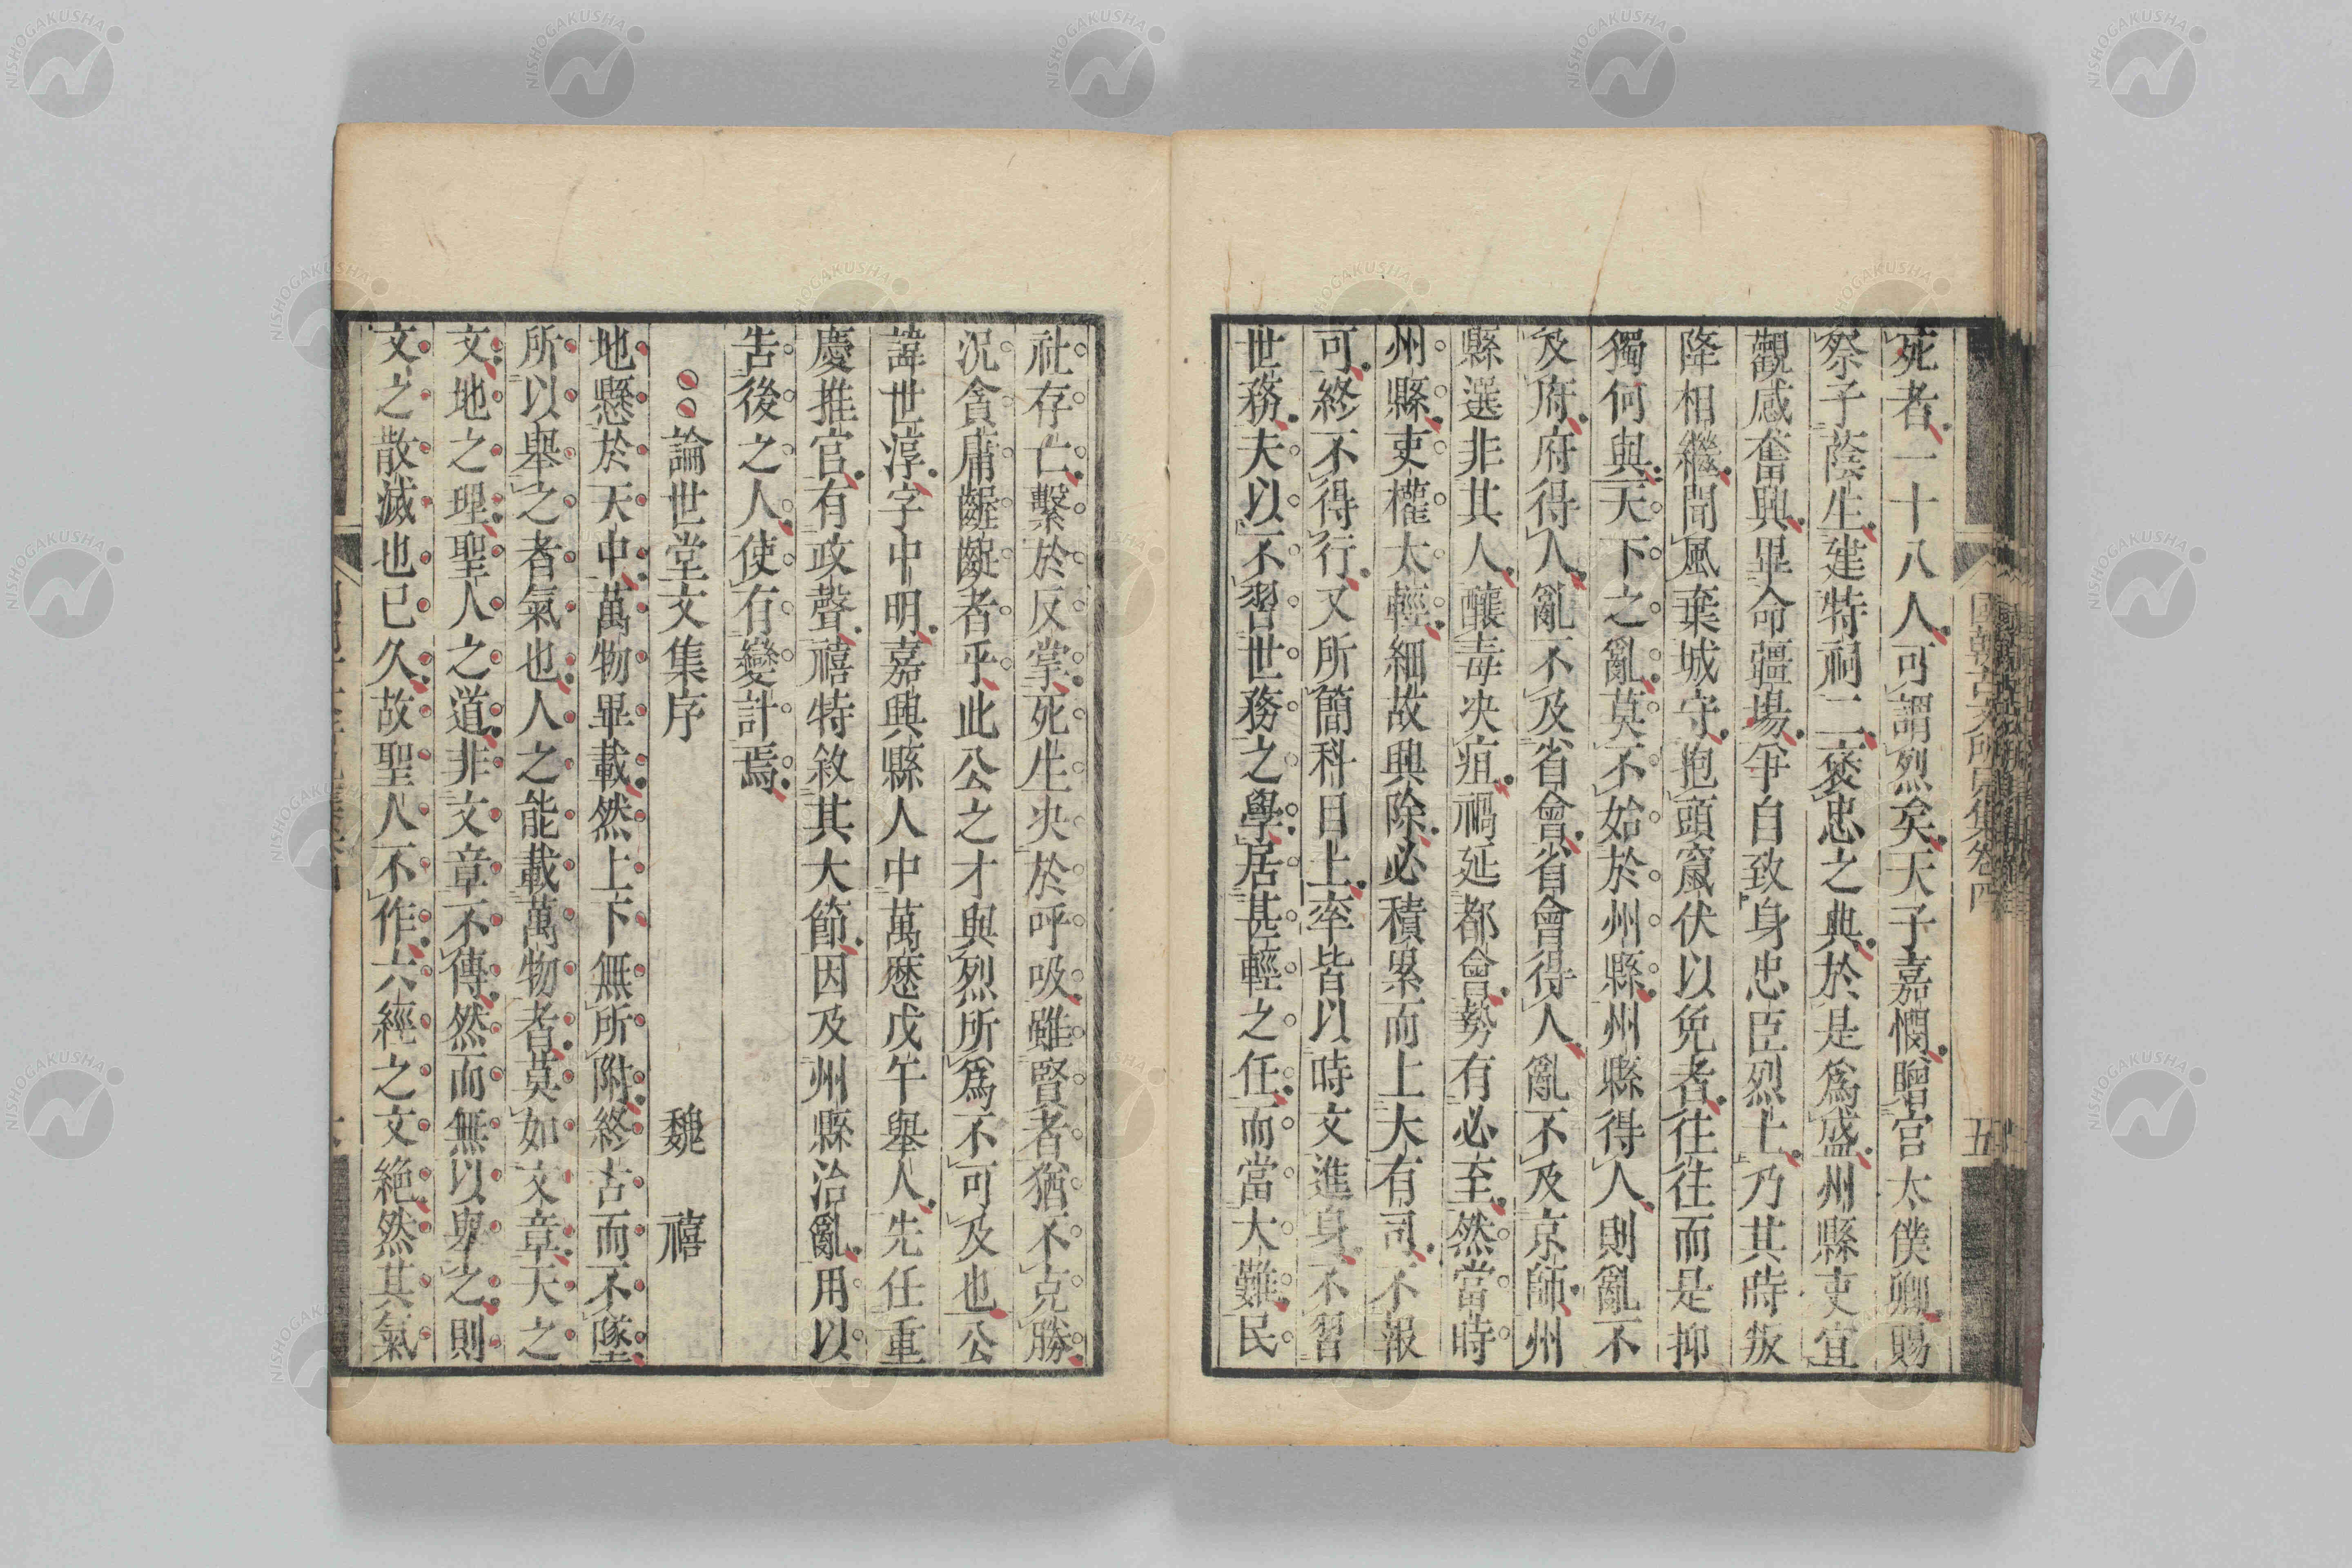 國朝古文所見集卷四
五
死者一十八人可謂烈矣天子嘉憫贈宮太僕卿賜
祭子蔭生建特祠二褒忠之典於是爲盛州縣吏宜
觀感奮興畢命疆場爭自致身忠臣烈士乃其時叛
降相繼聞風棄城守抱頭竄伏以免者往往而是抑
獨何與天下之亂莫不始於州縣州縣得人則亂不
及府府得人亂不及省會省會得人亂不及京師州
縣選非其人釀毒决疽禍延都會勢有必至然當時
州縣吏權太輕細故興除必積累而上大有司不報
可終不得行又所簡科目上率皆以時文進身不習
世務夫以不習世務之學居甚輕之任而當大難民
社存亡繫於反掌死生决於呼吸雖賢者猶不克勝
况貪庸齷齪者乎此公之才與烈所爲不可及也公
諱世淳字中明嘉興縣人中萬歷戊午舉人先任重
慶推官有政聲禧特敘其大節因及州縣治亂用以
告後之人使有變計焉
論世堂文集序 魏禧
地懸於天中萬物畢載然上下無所附終古而不墜
所以舉之者氣也人之能載萬物者莫如文章天之
文地之理聖人之道非文章不傳然而無以舉之則
文之散滅也已久故聖人不作六經之文絶然其氣
NISHOGAKUSHA